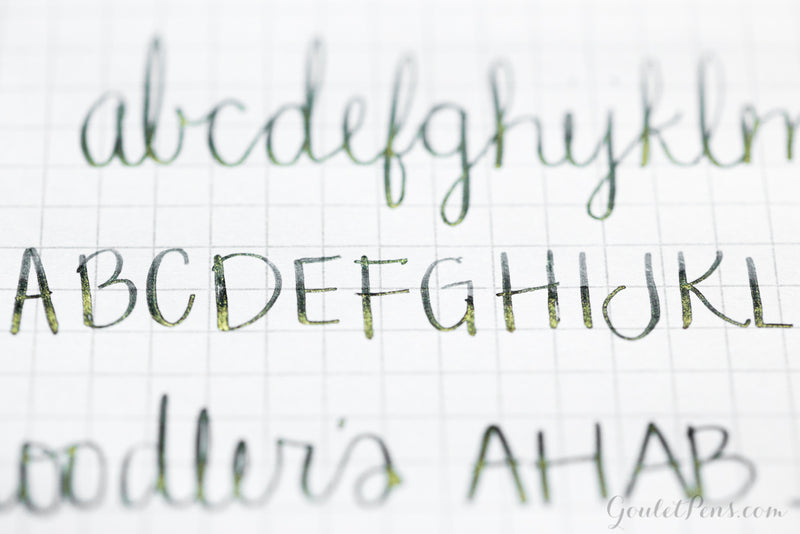 abcdefghijklm
ABCDEFGHIJKL
oodler's AHAB
GouletPens.com